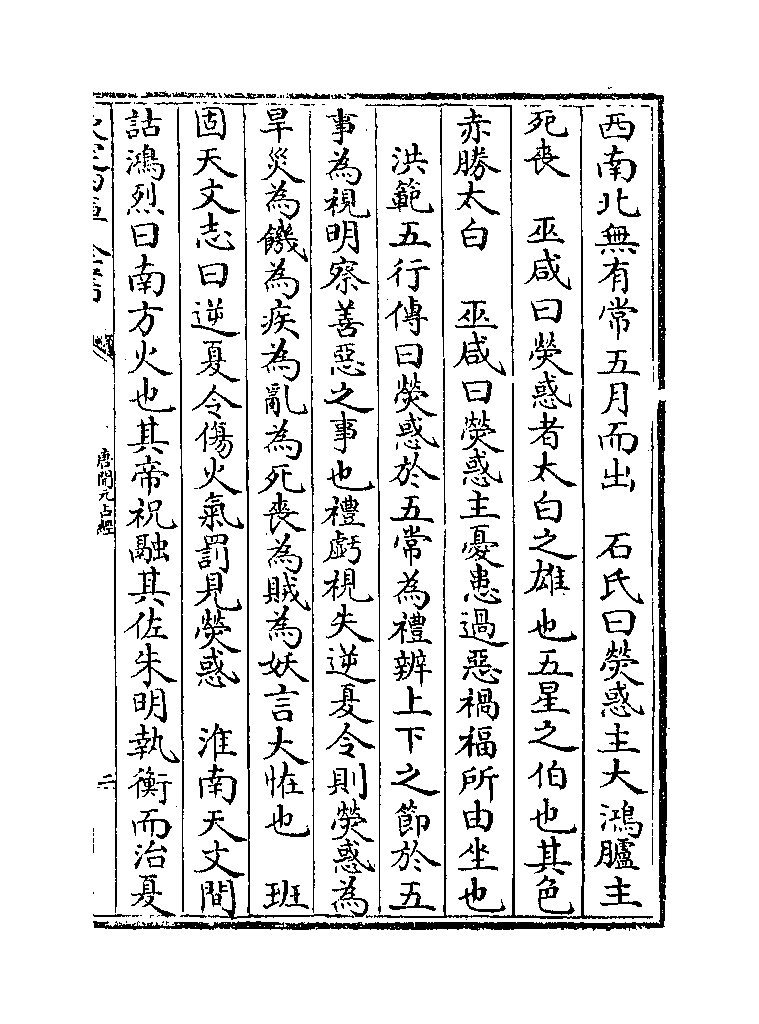 西南北無有常五月而出　石氏曰熒惑主大鴻臚主
死喪　巫咸曰熒惑者太白之雄也五星之伯也其色
赤勝太白　巫咸曰熒惑主憂患過惡禍福所由坐也
　洪範五行傳曰熒惑於五常為禮辨上下之節於五
事為視明察善惡之事也禮虧視失逆夏令則熒惑為
旱災為饑為疾為亂為死喪為賊為妖言大恠也　班
固天文志曰逆夏令傷火氣罰見熒惑　淮南天文間
詁鴻烈曰南方火也其帝祝融其佐朱明執衡而治夏
唐開元占經
二